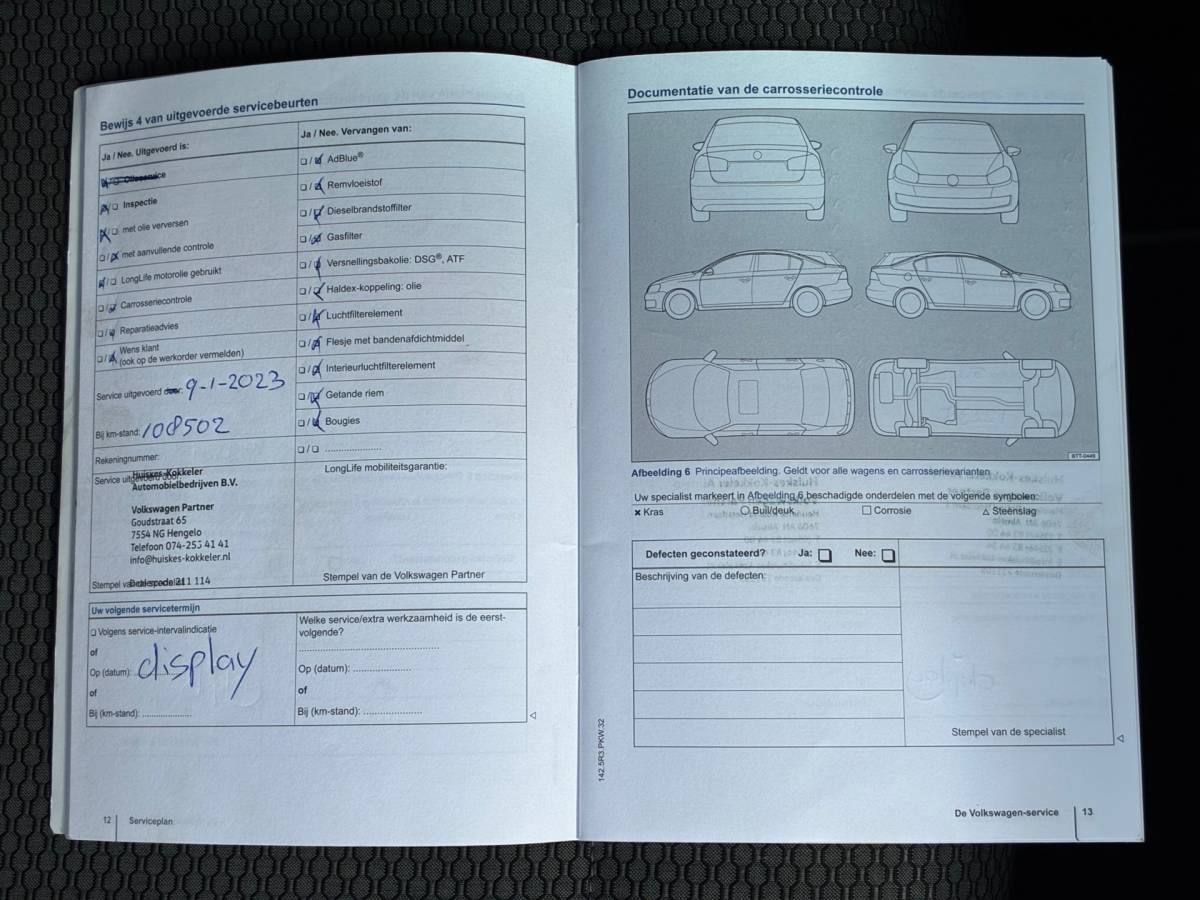 Bewijs 4 van uitgevoerde servicebeurten
Ja / Nee. Uitgevoerd is:
Olieservice
☒/☐ Inspectie
☒/☐ met olie verversen
☐/☒ met aanvullende controle
☒/☐ LongLife motorolie gebruikt
☐/☒ Carrosseriecontrole
☐/☒ Reparatieadvies
☐/☒ Wens klant
(ook op de werkorder vermelden)
Service uitgevoerd door: 9-1-2023
Bij km-stand: 108502
Rekeningnummer:
Service uitgevoerd door:
Huiskes-Kokkeler
Automobielbedrijven B.V.
Volkswagen Partner
Goudstraat 65
7554 NG Hengelo
Telefoon 074-255 41 41
info@huiskes-kokkeler.nl
Dealercode 211 114
Ja / Nee. Vervangen van:
☐/☒ AdBlue®
☐/☒ Remvloeistof
☐/☒ Dieselbrandstoffilter
☐/☒ Gasfilter
☐/☒ Versnellingsbakolie: DSG®, ATF
☐/☒ Haldex-koppeling: olie
☐/☒ Luchtfilterelement
☐/☒ Flesje met bandenafdichtmiddel
☐/☒ Interieurluchtfilterelement
☐/☒ Getande riem
☐/☒ Bougies
☐/☐ .....................
LongLife mobiliteitsgarantie:
Stempel van de Volkswagen Partner
Uw volgende servicetermijn
☐ Volgens service-intervalindicatie
of
Op (datum): display
of
Bij (km-stand): ..................
Welke service/extra werkzaamheid is de eerst-
volgende?
..................................................
Op (datum): .....................
of
Bij (km-stand): .....................
12 Serviceplan
Documentatie van de carrosseriecontrole
BTT-0449
Afbeelding 6 Principeafbeelding. Geldt voor alle wagens en carrosserievarianten
Uw specialist markeert in Afbeelding 6 beschadigde onderdelen met de volgende symbolen:
× Kras ○ Buil/deuk ☐ Corrosie △ Steenslag
Defecten geconstateerd? Ja: ☐ Nee: ☐
Beschrijving van de defecten:
Stempel van de specialist
142.5R3.PKW.32
De Volkswagen-service 13